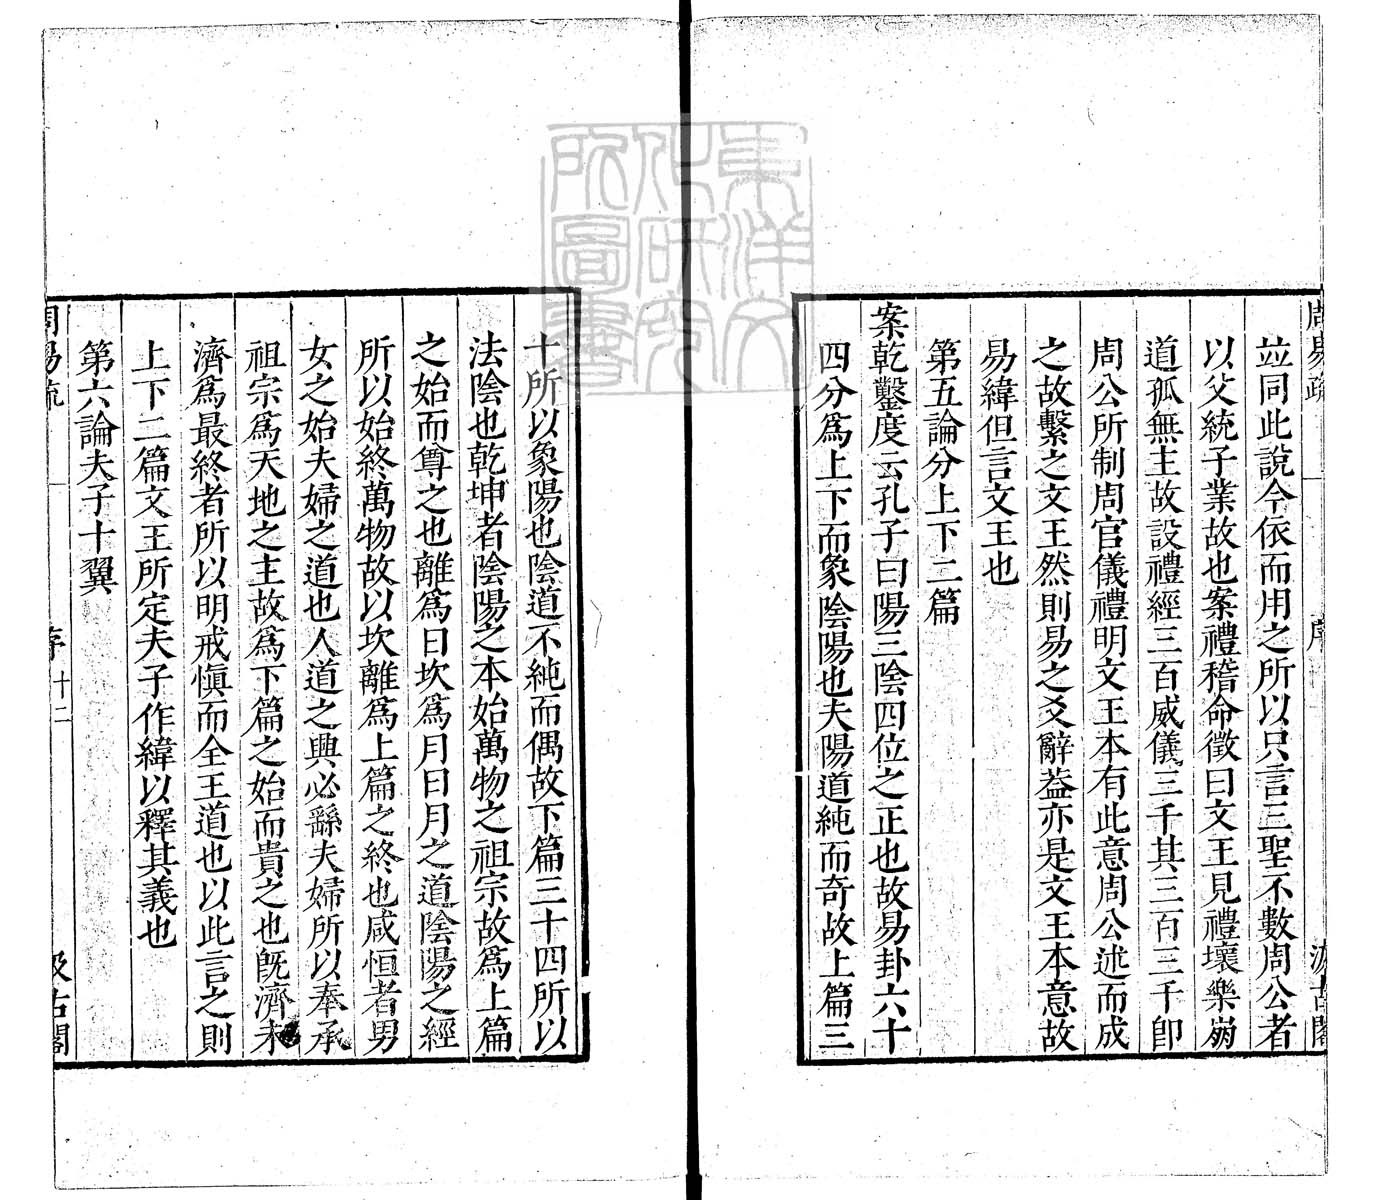 竝同此說今依而用之所以只言三聖不數周公者
以父統子業故也案禮稽命徵曰文王見禮壞樂崩
道孤無主故設禮經三百威儀三千其三百三千卽
周公所制周官儀禮明文王本有此意周公述而成
之故繫之文王然則易之爻辭葢亦是文王本意故
易緯但言文王也
第五論分上下二篇
案乾鑿度云孔子曰陽三陰四位之正也故易卦六十
四分爲上下而象陰陽也夫陽道純而奇故上篇三
十所以象陽也陰道不純而偶故下篇三十四所以
法陰也乾坤者陰陽之本始萬物之祖宗故爲上篇
之始而尊之也離爲日坎爲月日月之道陰陽之經
所以始終萬物故以坎離爲上篇之終也咸恒者男
女之始夫婦之道也人道之興必繇夫婦所以奉承
祖宗爲天地之主故爲下篇之始而貴之也旣濟未
濟爲最終者所以明戒愼而全王道也以此言之則
上下二篇文王所定夫子作緯以釋其義也
第六論夫子十翼
周易疏 序 十二 汲古閣
東洋文
化研究
所圖書